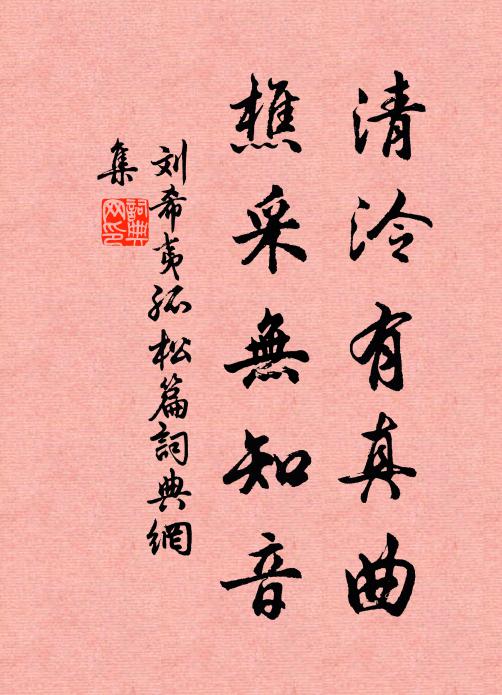 清泠有真曲
樵采無知音
刘希夷孤松篇詞典網
集
詞典
网印